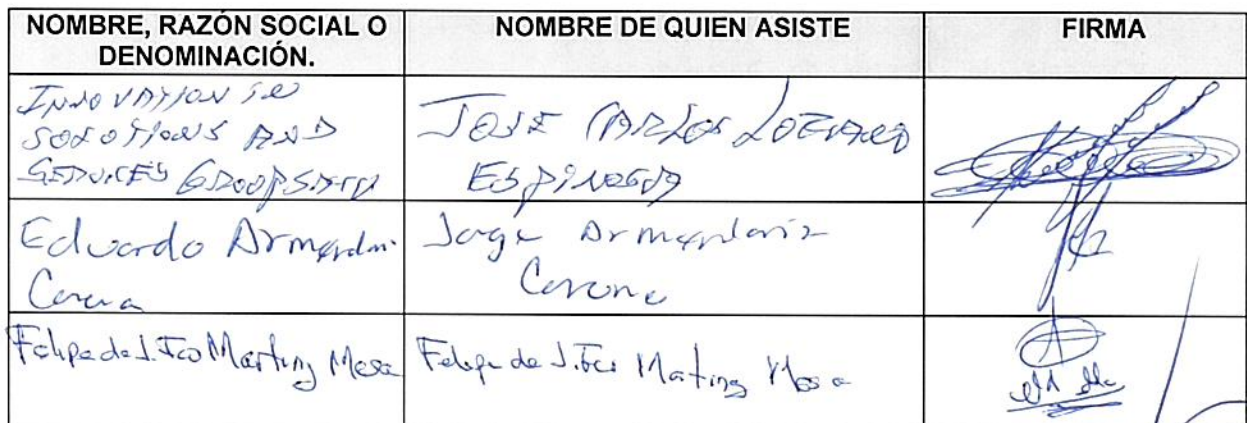 NOMBRE, RAZÓN SOCIAL O DENOMINACIÓN.
NOMBRE DE QUIEN ASISTE
FIRMA
INNOVATION IN
SOLOTIONS AND
SERVICES GROOP
JOSE CARLOS LOZANO
ESPINOSA
Eduardo Armendari
Corona
Jorge Armendariz
Corona
Felipe de J. Fco Martinz Mesa
Felipe de J. Fco Martinz Mesa